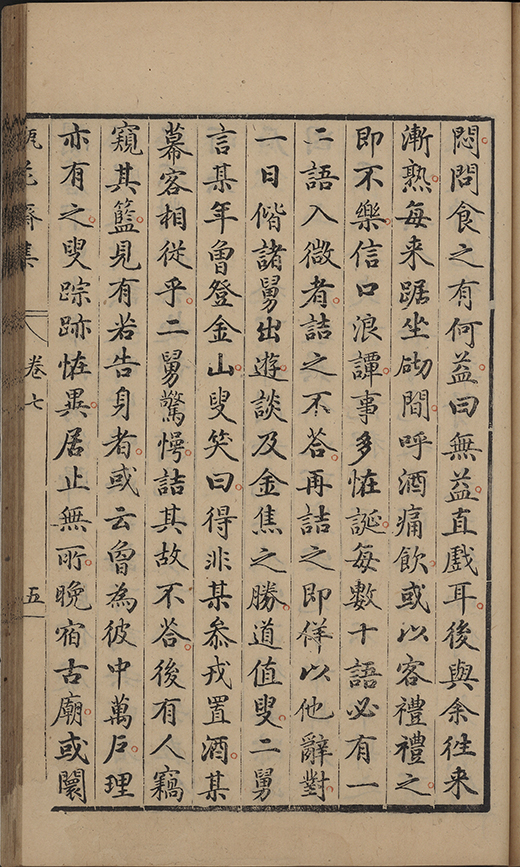 悶問食之有何益曰無益直戲耳後與余徃来
漸熟每来踞坐砌間呼酒痛飲或以客禮禮之
即不樂信口浪譚事多恠誕每數十語必有一
二語入微者詰之不答再詰之即佯以他辭對
一日偕諸舅出遊談及金焦之勝道值叟二舅
言某年曾登金山叟笑曰得非某叅戎置酒某
幕客相從乎二舅驚愕詰其故不答後有人竊
窺其籃見有若告身者或云曾為彼中萬戶理
亦有之叟踪跡恠異居止無所晚宿古廟或闤
瓶花齋集
卷七
五